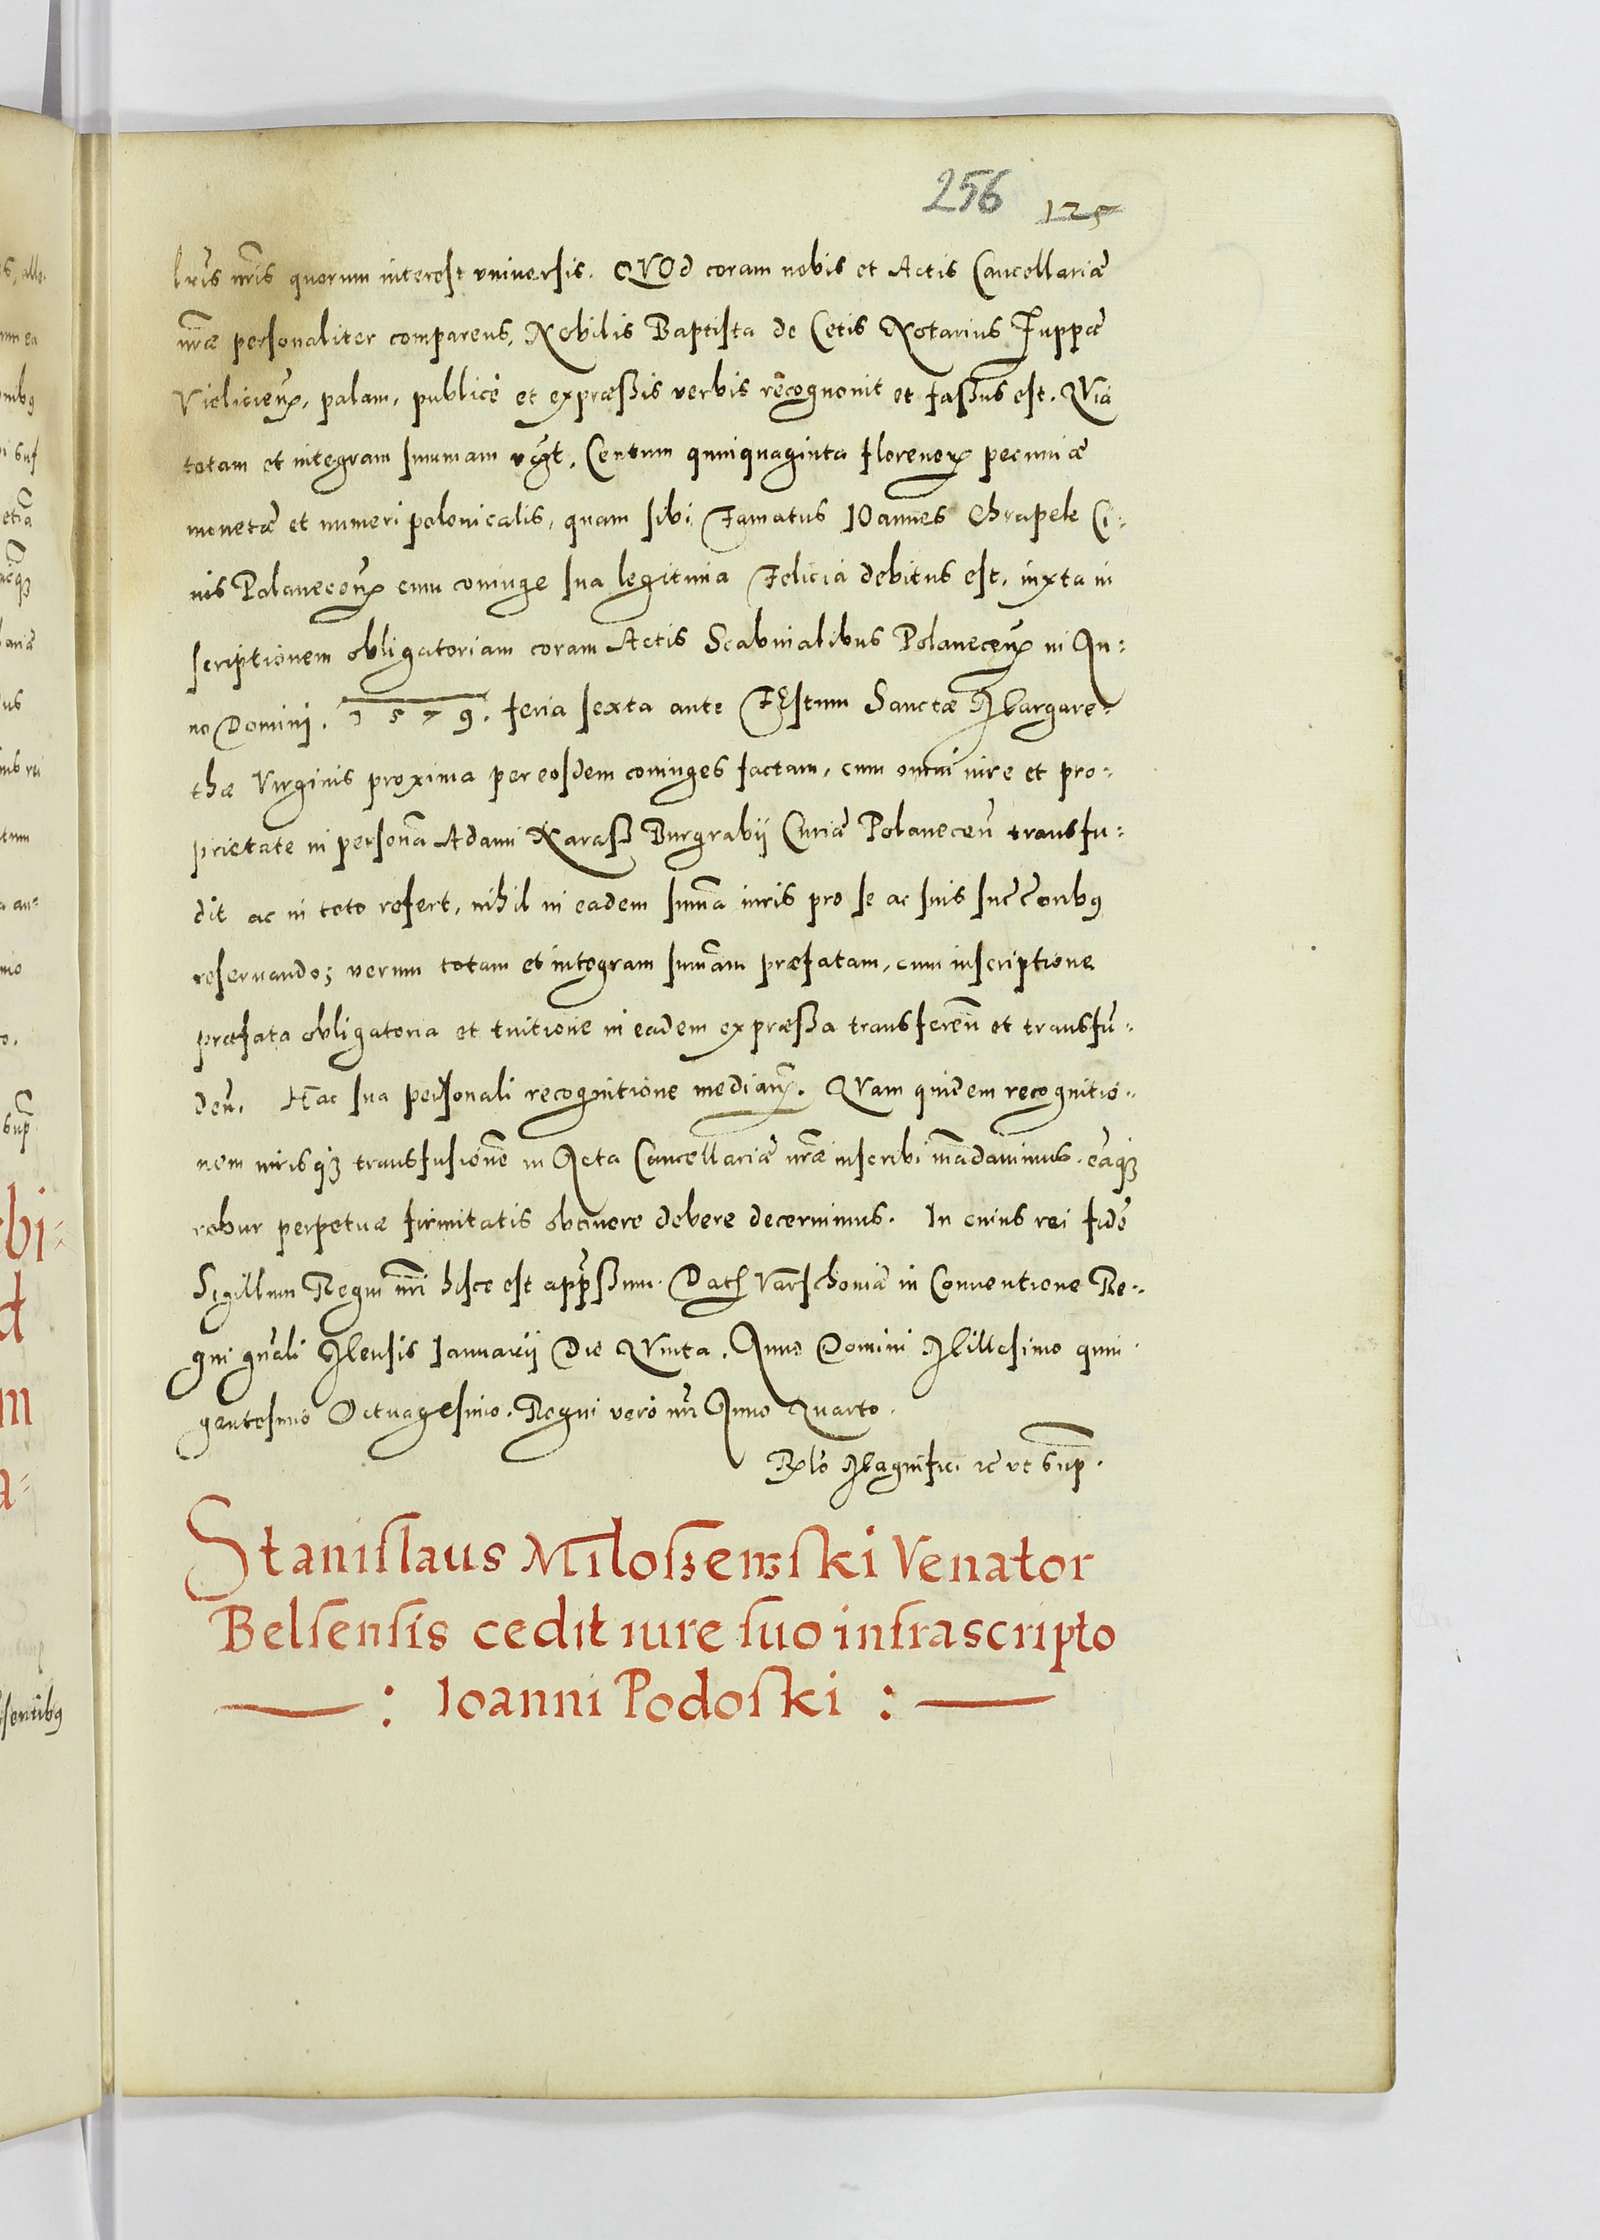 256 125
lris nris quorum interest vniuersis. QVOd coram nobis et Actis Cancellariæ
nræ personaliter comparens, Nobilis Baptista de Cetis Notarius Zuppæ
Vieliciens, palam, publicè et expræßis verbis recognouit et faßus est. QVia
totam et integram summam vgt, Centum quinquaginta florenor pecuniæ
monetæ et numeri polonicalis, quam sibi Famatus IOannes Chrapek Ci:
uis Polanecens cum coniuge sua legitima Felicia debitus est, iuxta in
scriptionem obligatoriam coram Actis Scabinalibus Polanecens in An:
no Domini. 1579. feria sexta ante FEstum Sanctæ Margare:
thæ Virginis proxima per eosdem coniuges factam, cum omni iure et pro:
prietate in persona Adami Karaß Burgrabij Curiæ Polanecen transfu:
dit ac in toto refert, nihil in eadem suma iuris pro se ac suis succoribus
reseruando; verum totam et integram sumam præfatam, cum inscriptione
præfata obligatoria et tuitione in eadem expræßa transferen et transfu:
den. Hac sua personali recognitione median. QVam quidem recognitio:
nem iurisq3 transfusionem in Acta Cancellariæ nræ inscribi mandauimus. eaq3
robur perpetuæ firmitatis obtinere debere decernimus. In cuius rei fide
Sigillum Regni nri hisce est appræßum. Dat Varschouiæ in Conuentione Re:
gni gnali Mensis Ianuarij Die QVinta. Anno Domini Millesimo quin
gentesimo Octuagesimo. Regni verò nri Anno Quarto.
Rlo Magnifici rc vt sup.
Stanislaus Miloszewski Venator
Belsensis cedit iure suo infrascripto
: Ioanni Podoski :